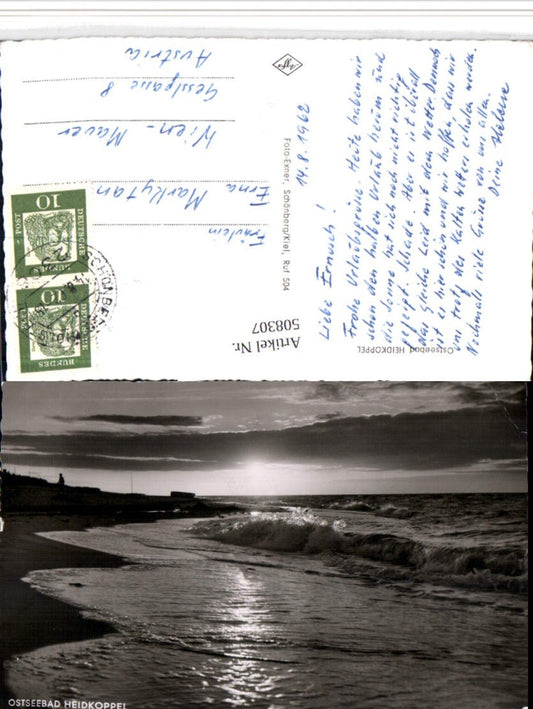 14.8.1962
Liebe Ernuch!
Frohe Urlaubsgrüsse. Heute haben wir
schon den halben Urlaub herum und
die Sonne hat sich noch nicht richtig
gezeigt. Schade. Aber es ist überall
das gleiche Leid mit dem Wetter. Dennoch
ist es hier schön und wir hoffen, dass wir
uns trotz der Kälte etwas erholen werden.
Nochmals viele Grüsse von uns allen.
Deine Helene
Ostseebad HEIDKOPPEL
Artikel Nr.
508307
Foto-Exner, Schönberg/Kiel, Ruf 504
Agfa
Fräulein
Erna Markytan
Wien - Mauer
Gesslgasse 8
Austria
10
DEUTSCHE
BUNDES
POST
10
DEUTSCHE
BUNDES
POST
SCHÖNBERG
OSTSEEBAD HEIDKOPPEL